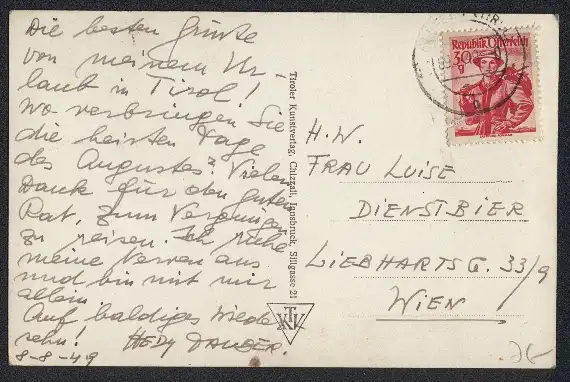 Die besten Grüße
von meinem Ur-
laub in Tirol!
Wo verbringen Sie
die heissten Tage
des Augustes? Vielen
Dank für den guten
Rat, zum Vergnügen
zu reisen. Ich ruhe
meine Nerven aus
und bin mit mir
allein.
Auf baldiges Wieder
sehn! HEDY DAUBER.
8-8-49
Tiroler Kunstverlag, Chizzali, Innsbruck, Sillgasse 21
TKV
Republik Österreich
30
g
H.W.
FRAU LUISE
DIENSTBIER
LIEBHARTSG. 33/9
WIEN